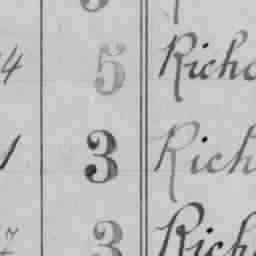 4 5 Richa
1 3 Rich
7 3 Richa